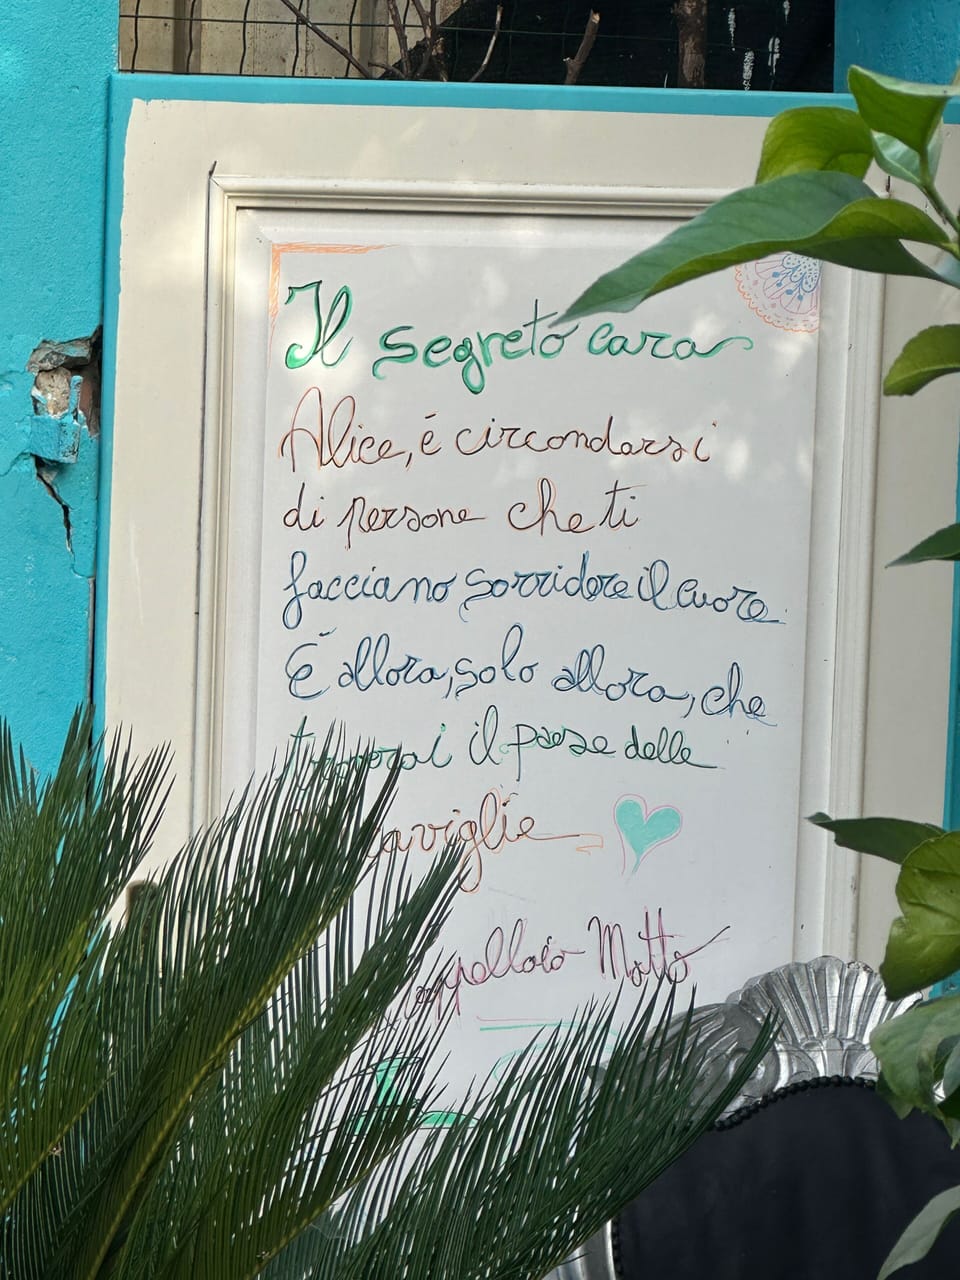 Il segreto cara
Alice, è circondarsi
di persone che ti
facciano sorridere il cuore.
È allora, solo allora, che
troverai il paese delle
Meraviglie
Cappellaio Matto